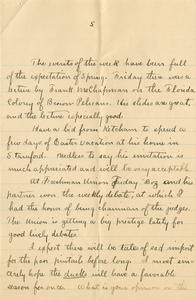 5
The events of the week have been full
of the expectation of Spring. Friday there was a
lecture by Frank M. Chapman on the Florida
Colony of Brown Pelicans. His slides are great
and the lecture especially good.
Have a bid from Ketcham to spend a
few days of Easter Vacation at his home in
Stamford. Needless to say his invitation is
much appreciated and will be very acceptable.
At Freshman Union Friday Big and his
partner won the weekly debate, at which I
had the honor of being chairman of the judges.
The Union is getting a big prestige lately for
good lively debates.
I expect there will be tales of sad import
for the poor printails before long. I most sin-
cerely hope the ducks will have a favorable
season for once. What is your opinion on the